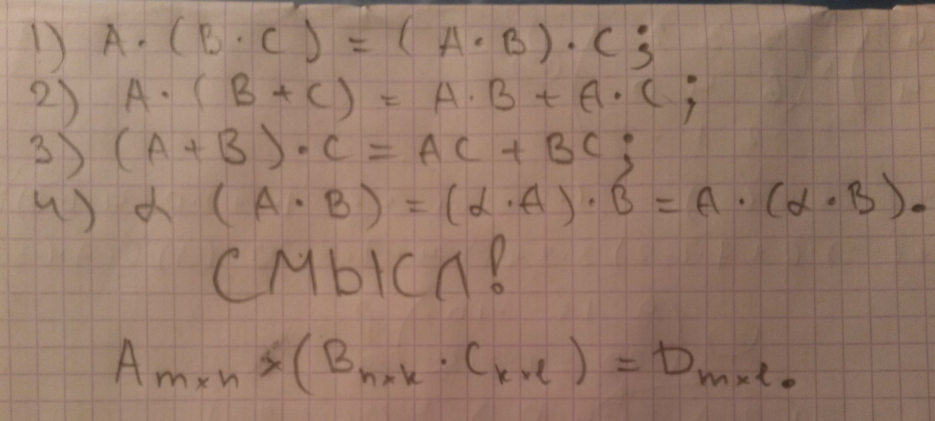 1) A · (B · C) = (A · B) · C;
2) A · (B + C) = A · B + A · C;
3) (A + B) · C = AC + BC;
4) α (A · B) = (α · A) · B = A · (α · B).
СМЫСЛ!
Aₘₓₙ × (Bₙₓₖ · Cₖₓₗ) = Dₘₓₗ.